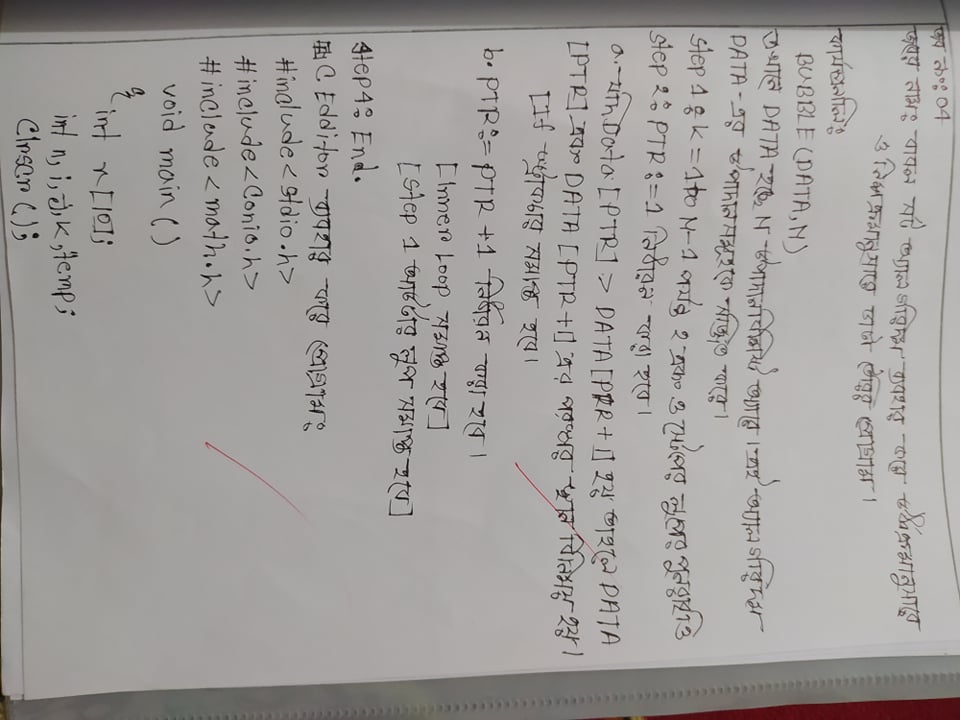 জব নং: 04
জবের নামঃ বাবল সর্ট অ্যালগরিদম ব্যবহার করে উর্ধ্বক্রমানুসারে
ও নিম্নক্রমানুসারে ডাটা সর্টের প্রোগ্রাম।
কার্যপ্রণালিঃ
BUBBLE (DATA, N)
এখানে DATA হচ্ছে N উপাদানবিশিষ্ট অ্যারে। এই অ্যালগরিদম
DATA-এর উপাদানসমূহকে সাজানো করে।
Step 1 : K = 1 to N-1 পর্যন্ত 2 এবং 3 স্টেপের লুপের পুনরাবৃত্তি
Step 2 : PTR := 1 নির্ধারন করা হবে।
a. যদি Data [PTR] > DATA [PTR+1] হয় তাহলে DATA
[PTR] এবং DATA [PTR+1] এর পরস্পর স্থান বিনিময় হয়।
[If স্ট্রাকচার সমাপ্ত হবে।
b. PTR := PTR +1 নির্ধারন করা হবে।
[Inner Loop সমাপ্ত হবে]
[Step 1 আউটার লুপ সমাপ্ত হবে]
Step 4: End.
C Edditor ব্যবহার করে প্রোগ্রামঃ
#include <stdio.h>
#include <Conio.h>
#include <math.h>
void main ()
{
int x [10];
int n, i, j, k, temp;
Clrscr ();